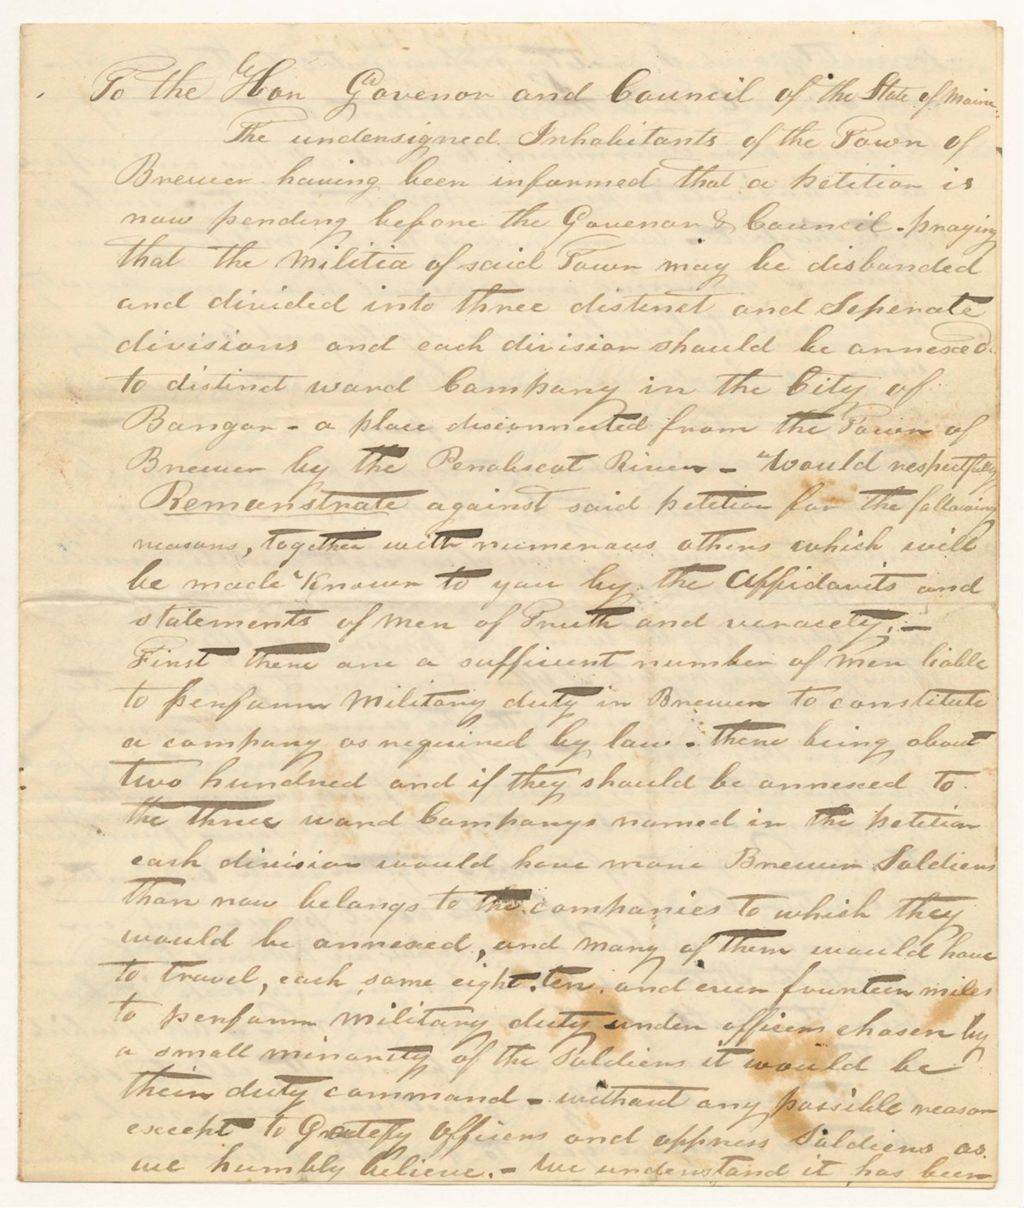 To the Hon Govenor and Council of the State of Maine.
The undersigned Inhabitants of the Town of
Brewer having been informed that a petition is
now pending before the Govenor & Council - praying
that the Militia of said Town may be disbanded
and divided into three distinct and Seperate
divisions and each division should be annexed
to distinct ward Company in the City of
Bangor - a place disconnected from the Town of
Brewer by the Penobscot River - Would respectfully
Remonstrate against said petition for the following
reasons, together with numerous others which will
be made Known to you by the Affidavits and
statements of men of Truth and veracety. -
First there are a sufficient number of men liable
to perform Military duty in Brewer to constitute
a company as required by law - there being about
two hundred and if they should be annexed to
the three ward Companys named in the petition
each division would have more Brewer Soldiers
than now belongs to the companies to which they
would be annexed, and many of them would have
to travel, each some eight, ten, and even fourteen miles
to perform military duty under officers chosen by
a small minority of the Soldiers it would be
their duty command - without any possible reason
except to Gratefy Officers and oppress Soldiers as
we humbly believe. - We understand it has been